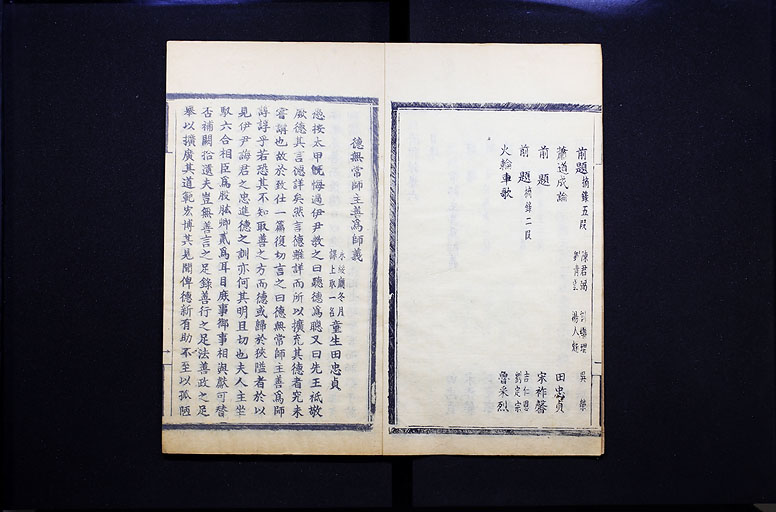 前題摘錄五段 陳君瑞 彭瑞瑺 吳榮
劉青雲 湯人鉽
蕭道成論 田忠貞
前題 宋祚馨
前題摘錄二段 吉仁恩
劉定宗
火輪車歌 曾采烈
德無常師主善為師義
永綏廳冬月
課上取一名 童生田忠貞
愚按太甲既悔過伊尹教之曰聽德為聰又曰先王祗敬
厥德其言德詳矣然言德雖詳而所以擴充其德者究未
嘗講也故於致仕一篇復切言之曰德無常師主善為師
諄諄乎若恐其不知取善之方而德或歸於狹隘者於以
見伊尹誨君之忠進德之訓亦何其明且切也夫人主坐
馭六合相臣為股肱卿貳為耳目庶事御事相與獻可替
否補闕拾遺夫豈無善言之足錄善行之足法善政之足
舉以擴廣其道範宏博其見聞俾德新有助不至以孤陋